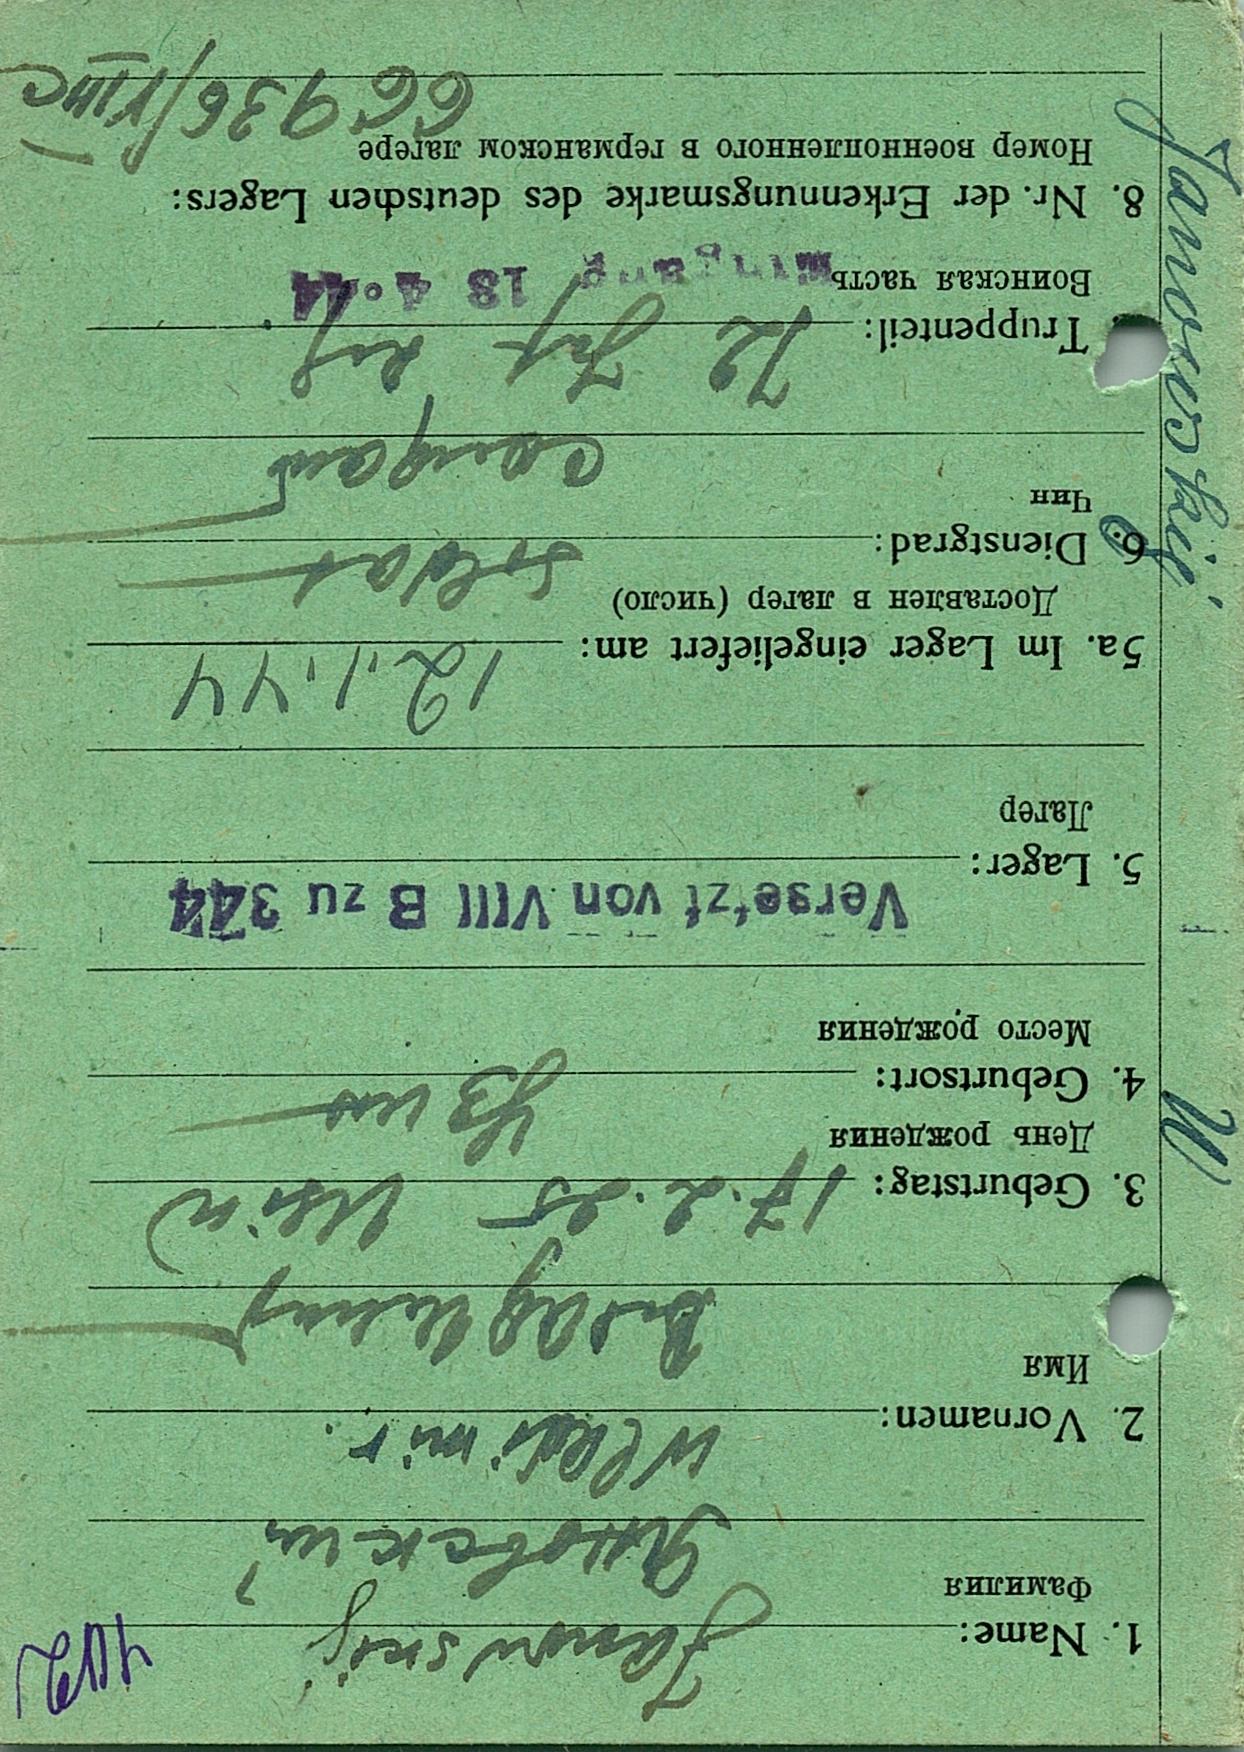 402
1. Name: Janowskij
Фамилия Яновский
2. Vornamen: Wladimir.
Имя Владимир
3. Geburtstag: 17.2.25
День рождения
4. Geburtsort:
Место рождения
Versetzt von VIII B zu 344
5. Lager:
Лагер
5a. Im Lager eingeliefert am: 12.1.44
Доставлен в лагер (число)
6. Dienstgrad: Soldat
Чин солдат
Truppenteil: 72 Inf Reg
Воинская часть Eingang 13 4. 44
8. Nr. der Erkennungsmarke des deutschen Lagers:
Номер военнопленного в германском лагере
66936/VIIIC
Janowskij